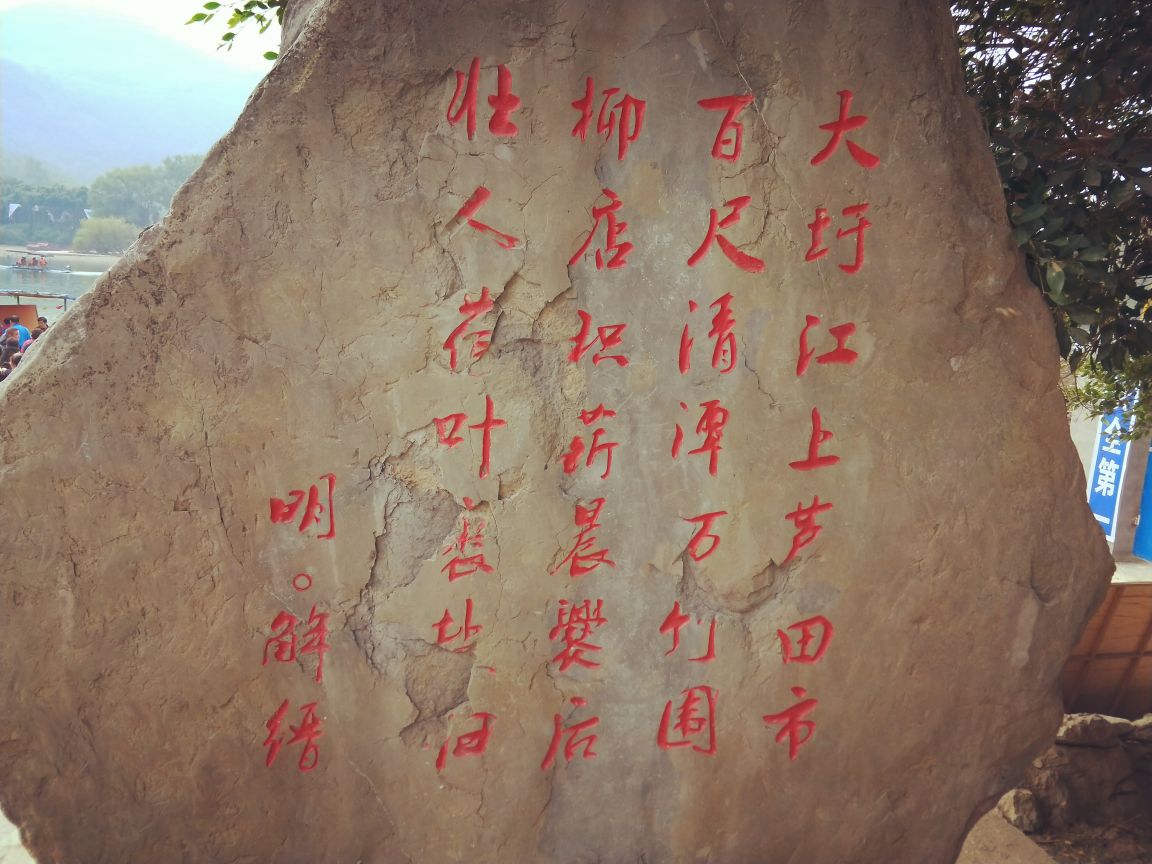 大圩江上芦田市
百尺清潭万竹圃
柳店积薪晨爨后
壮人荷叶裹盐归
明。解缙
全第一